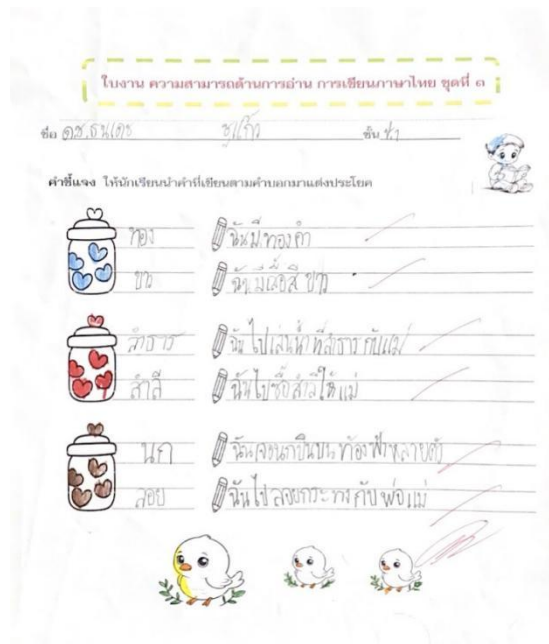 ใบงาน ความสามารถด้านการอ่าน การเขียนภาษาไทย ชุดที่ ๓
ชื่อ ด.ช.ธนเดช ชูแก้ว ชั้น
คำชี้แจง ให้นักเรียนนำคำที่เขียนตามคำบอกมาแต่งประโยค
ทอง ฉันมีทองคำ
ขาว ฉันมีเสื้อสี ขาว
ลำธาร ฉันไปเล่นน้ำ ที่ลำธาร กับแม่
สำลี ฉันไปซื้อสำลีให้แม่
นก ฉันเจอนกบินบน ท้องฟ้าหลายตัว
ลอย ฉันไป ลอยกระทง กับ พ่อ แม่